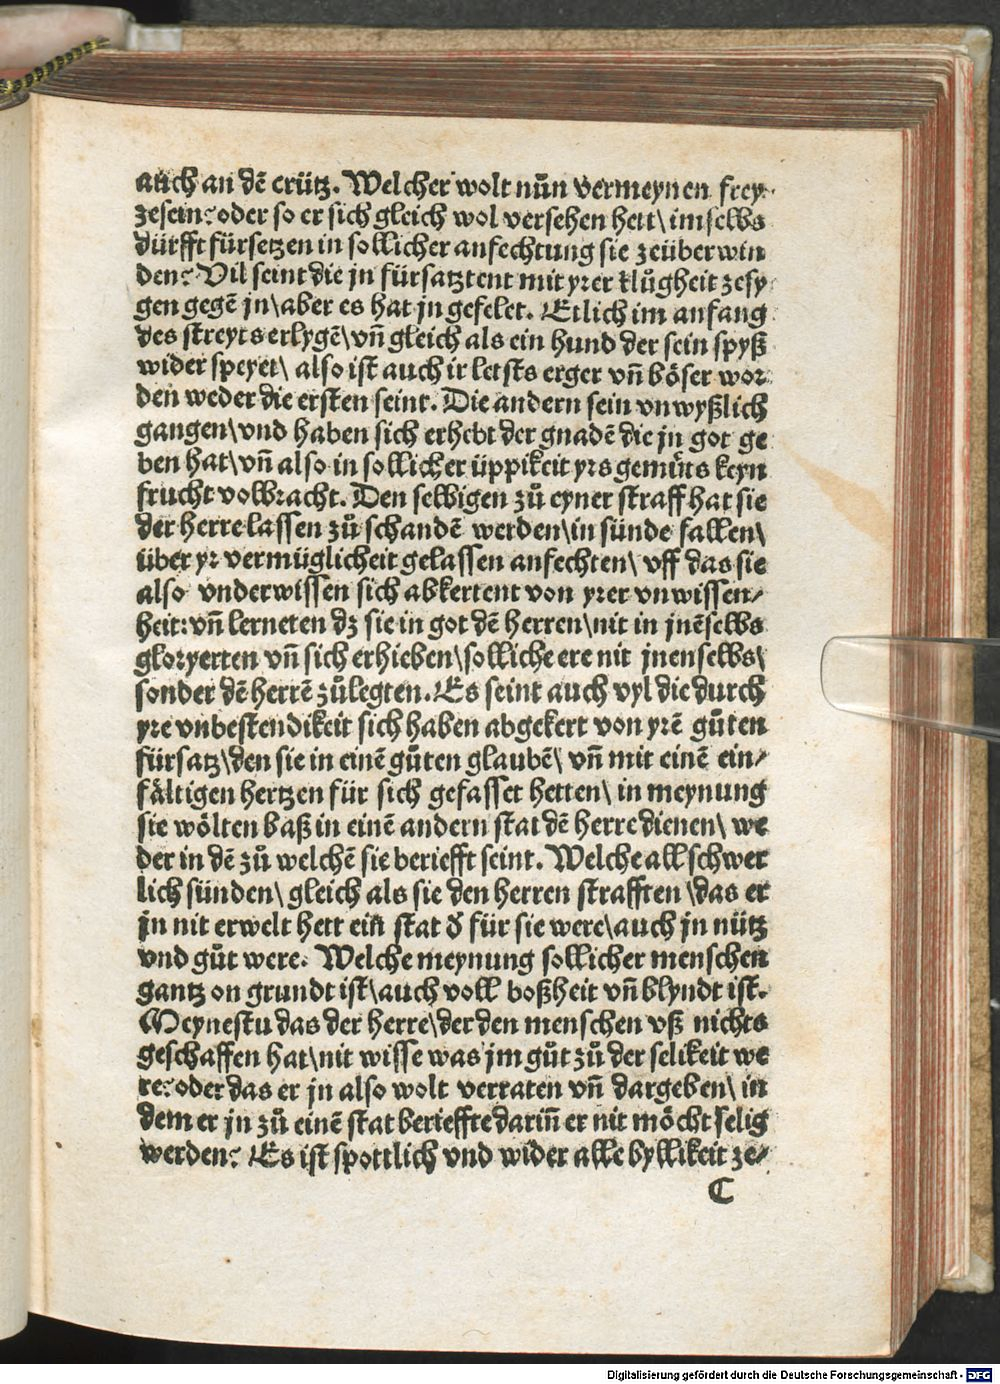 auch an dẽ crütz. Welcher wolt nůn vermeynen frey
zesein? oder so er sich gleich wol versehen hett\ im selbs
dürfft fürsetzen in sollicher anfechtung sie zeüberwin
den? Vil seint die jn fürsatztent mit yrer klůgheit zesy
gen gegẽ jn\ aber es hat jn gefelet. Etlich im anfang
des streyts erlygẽ\ vñ gleich als ein hund der sein spyß
wider speyet\ also ist auch ir letsts erger vñ böser wor
den weder die ersten seint. Die andern sein vnwyßlich
gangen\ vnd haben sich erhebt der gnadẽ die jn got ge
ben hat\ vñ also in sollicher üppikeit yrs gemüts keyn
frucht volbracht. Den selbigen zů eyner straff hat sie
der herre lassen zů schandẽ werden\ in sünde fallen\
über yr vermüglicheit gelassen anfechten\ vff das sie
also vnderwissen sich abkertent von yrer vnwissen⸗
heit: vñ lerneten dz sie in got dẽ herren\ nit in jnẽselbs
gloryerten vñ sich erhieben\ solliche ere nit jnen selbs\
sonder dẽ herrẽ zůlegten. Es seint auch vyl die durch
yre vnbestendikeit sich haben abgekert von yrẽ gůten
fürsatz\ den sie in einẽ gůten glaubẽ\ vñ mit einẽ ein⸗
fältigen hertzen für sich gefasset hetten\ in meynung
sie wölten baß in einẽ andern stat dẽ herre dienen\ we
der in dẽ zů welchẽ sie beriefft seint. Welche all schwer
lich sünden\ gleich als sie den herren strafften\ das er
jn nit erwelt hett ein stat d̕ für sie were\ auch jn nütz
vnd gůt were. Welche meynung sollicher menschen
gantz on grundt ist\ auch voll boßheit vñ blyndt ist.
Meynestu das der herre\ der den menschen vß nichts
geschaffen hat\ nit wisse was jm gůt zů der selikeit we
re? oder das er jn also wolt verraten vñ dargeben\ in
dem er jn zů einẽ stat berieffte dariñ er nit möcht selig
werden? Es ist spottlich vnd wider alle byllikeit ze⸗
C
Digitalisierung gefördert durch die Deutsche Forschungsgemeinschaft - DFG